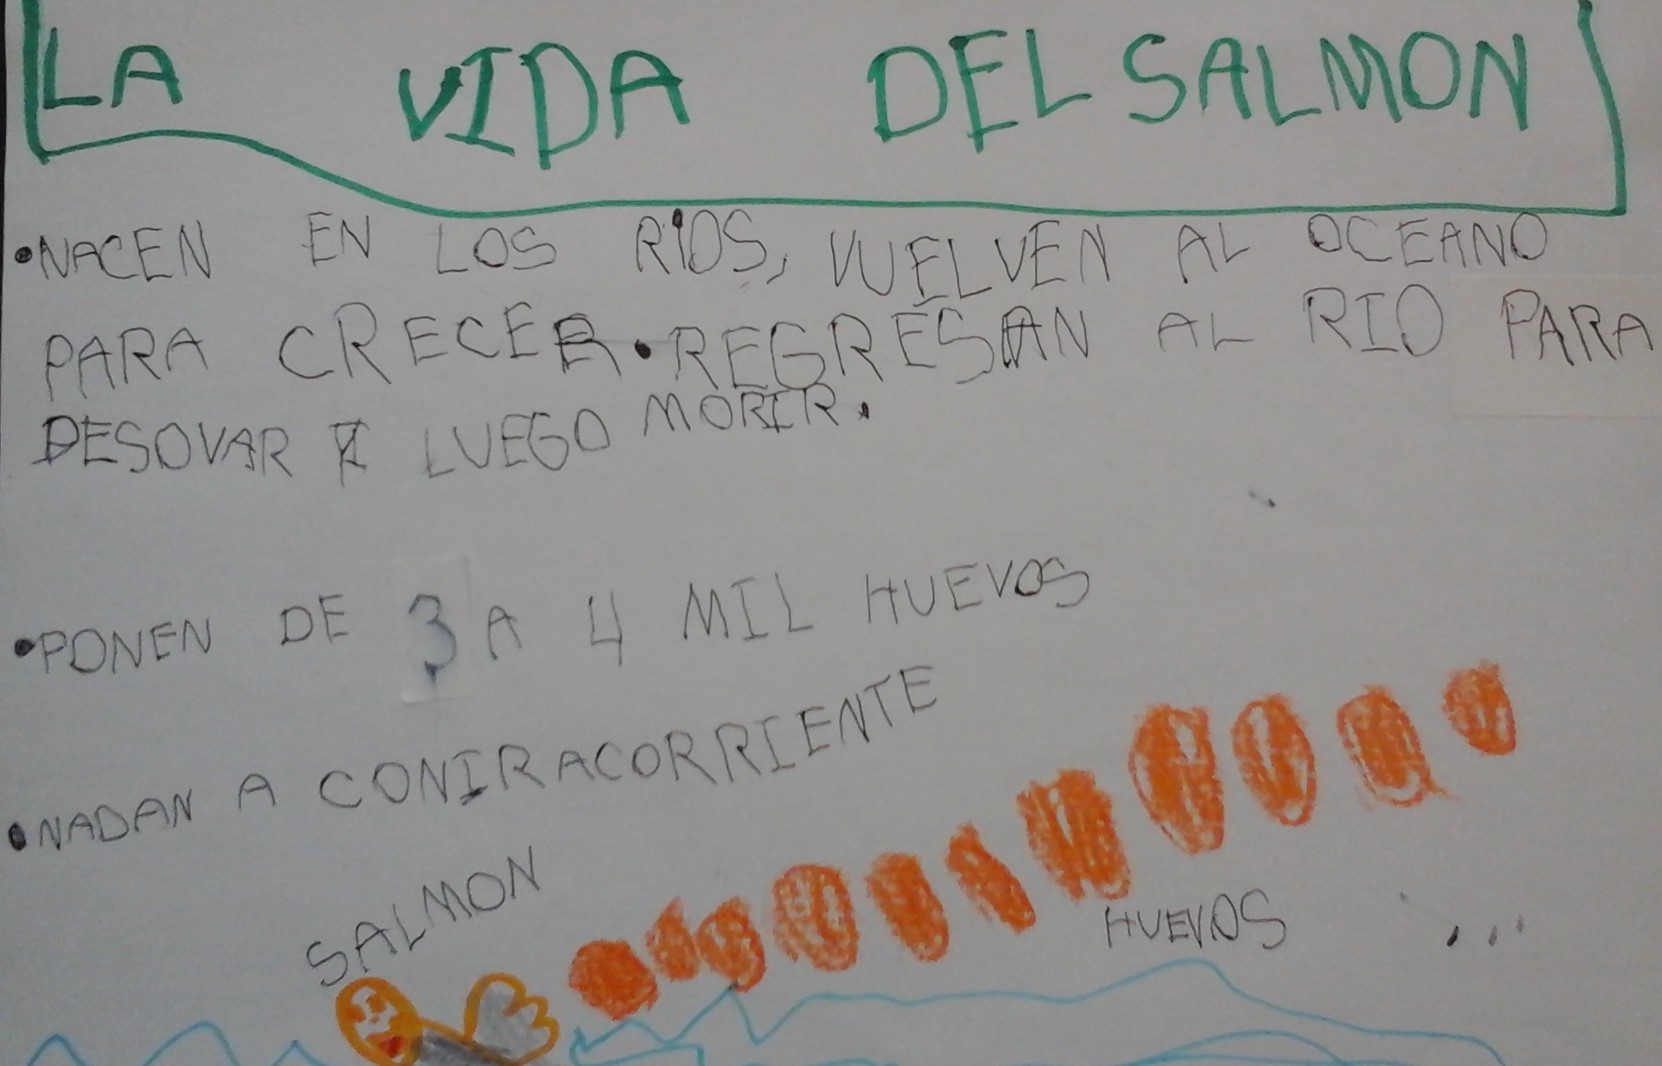 LA VIDA DEL SALMON
•NACEN EN LOS RIOS, VUELVEN AL OCEANO
PARA CRECER.REGRESAN AL RIO PARA
DESOVAR Y LUEGO MORIR.
•PONEN DE 3 A 4 MIL HUEVOS
•NADAN A CONTRACORRIENTE
SALMON
HUEVOS ...